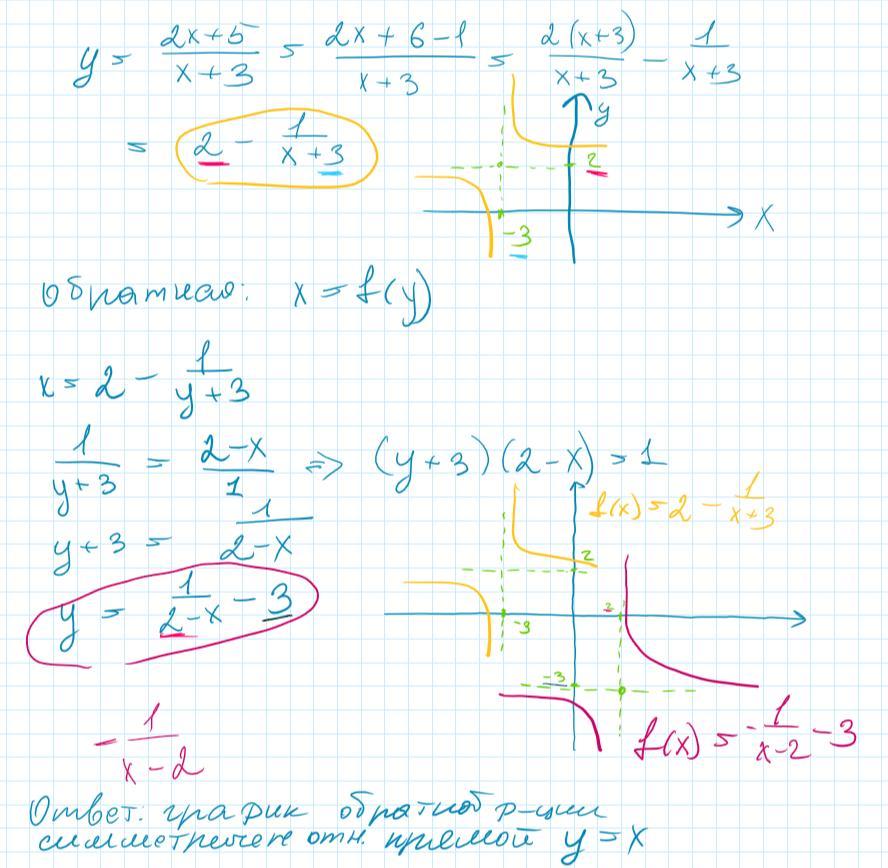 y = (2x+5)/(x+3) = (2x+6-1)/(x+3) = 2(x+3)/(x+3) - 1/(x+3)
= 2 - 1/(x+3)
y
2
-3
x
Обратная: x = f(y)
x = 2 - 1/(y+3)
1/(y+3) = (2-x)/1 => (y+3)(2-x) = 1
y+3 = 1/(2-x)
f(x) = 2 - 1/(x+3)
2
y = 1/(2-x) - 3
-3
2
-3
- 1/(x-2)
f(x) = - 1/(x-2) - 3
Ответ: график обратной ф-ции
симметричен отн. прямой y = x